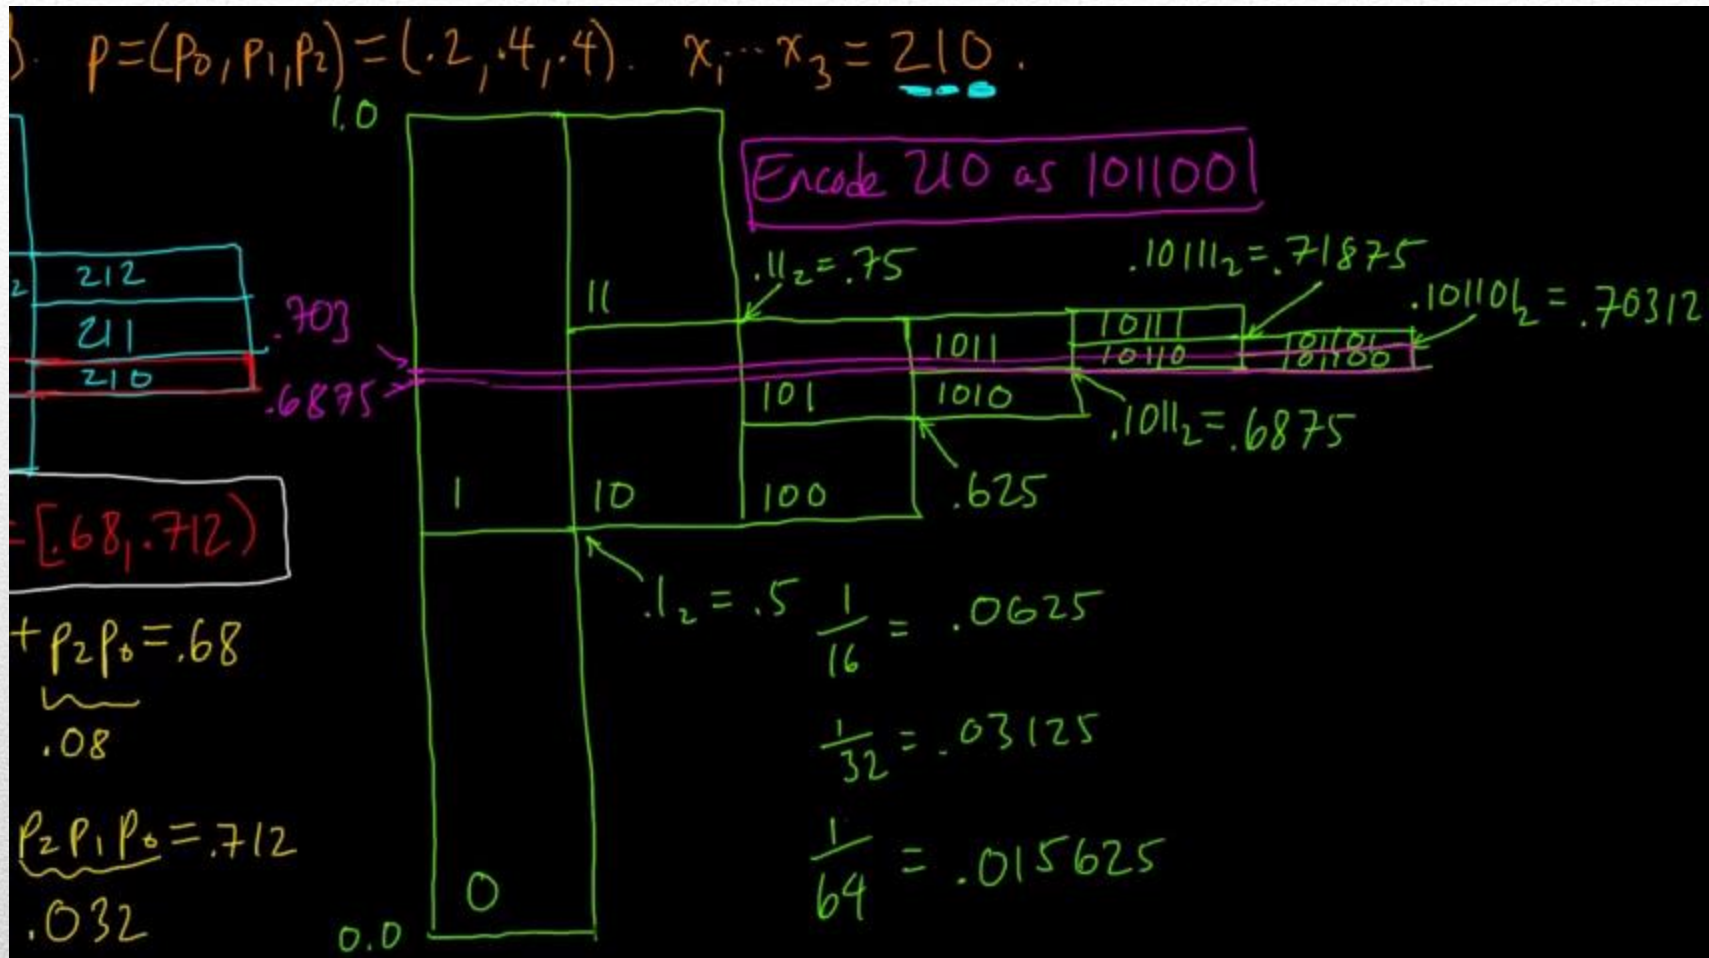 ). p=(p₀,p₁,p₂)=(.2,.4,.4). x₁...x₃ = 210.
1.0
Encode 210 as 101100
2
212
211
210
.703
.6875
11
.11₂=.75
.10111₂=.71875
.101101₂=.70312
1011
10111
10110
101
1010
.1011₂=.6875
1
10
100
.625
=[.68,.712)
.1₂=.5
1/16 = .0625
+p₂p₀=.68
.08
1/32=.03125
p₂p₁p₀=.712
.032
1/64 = .015625
0
0.0